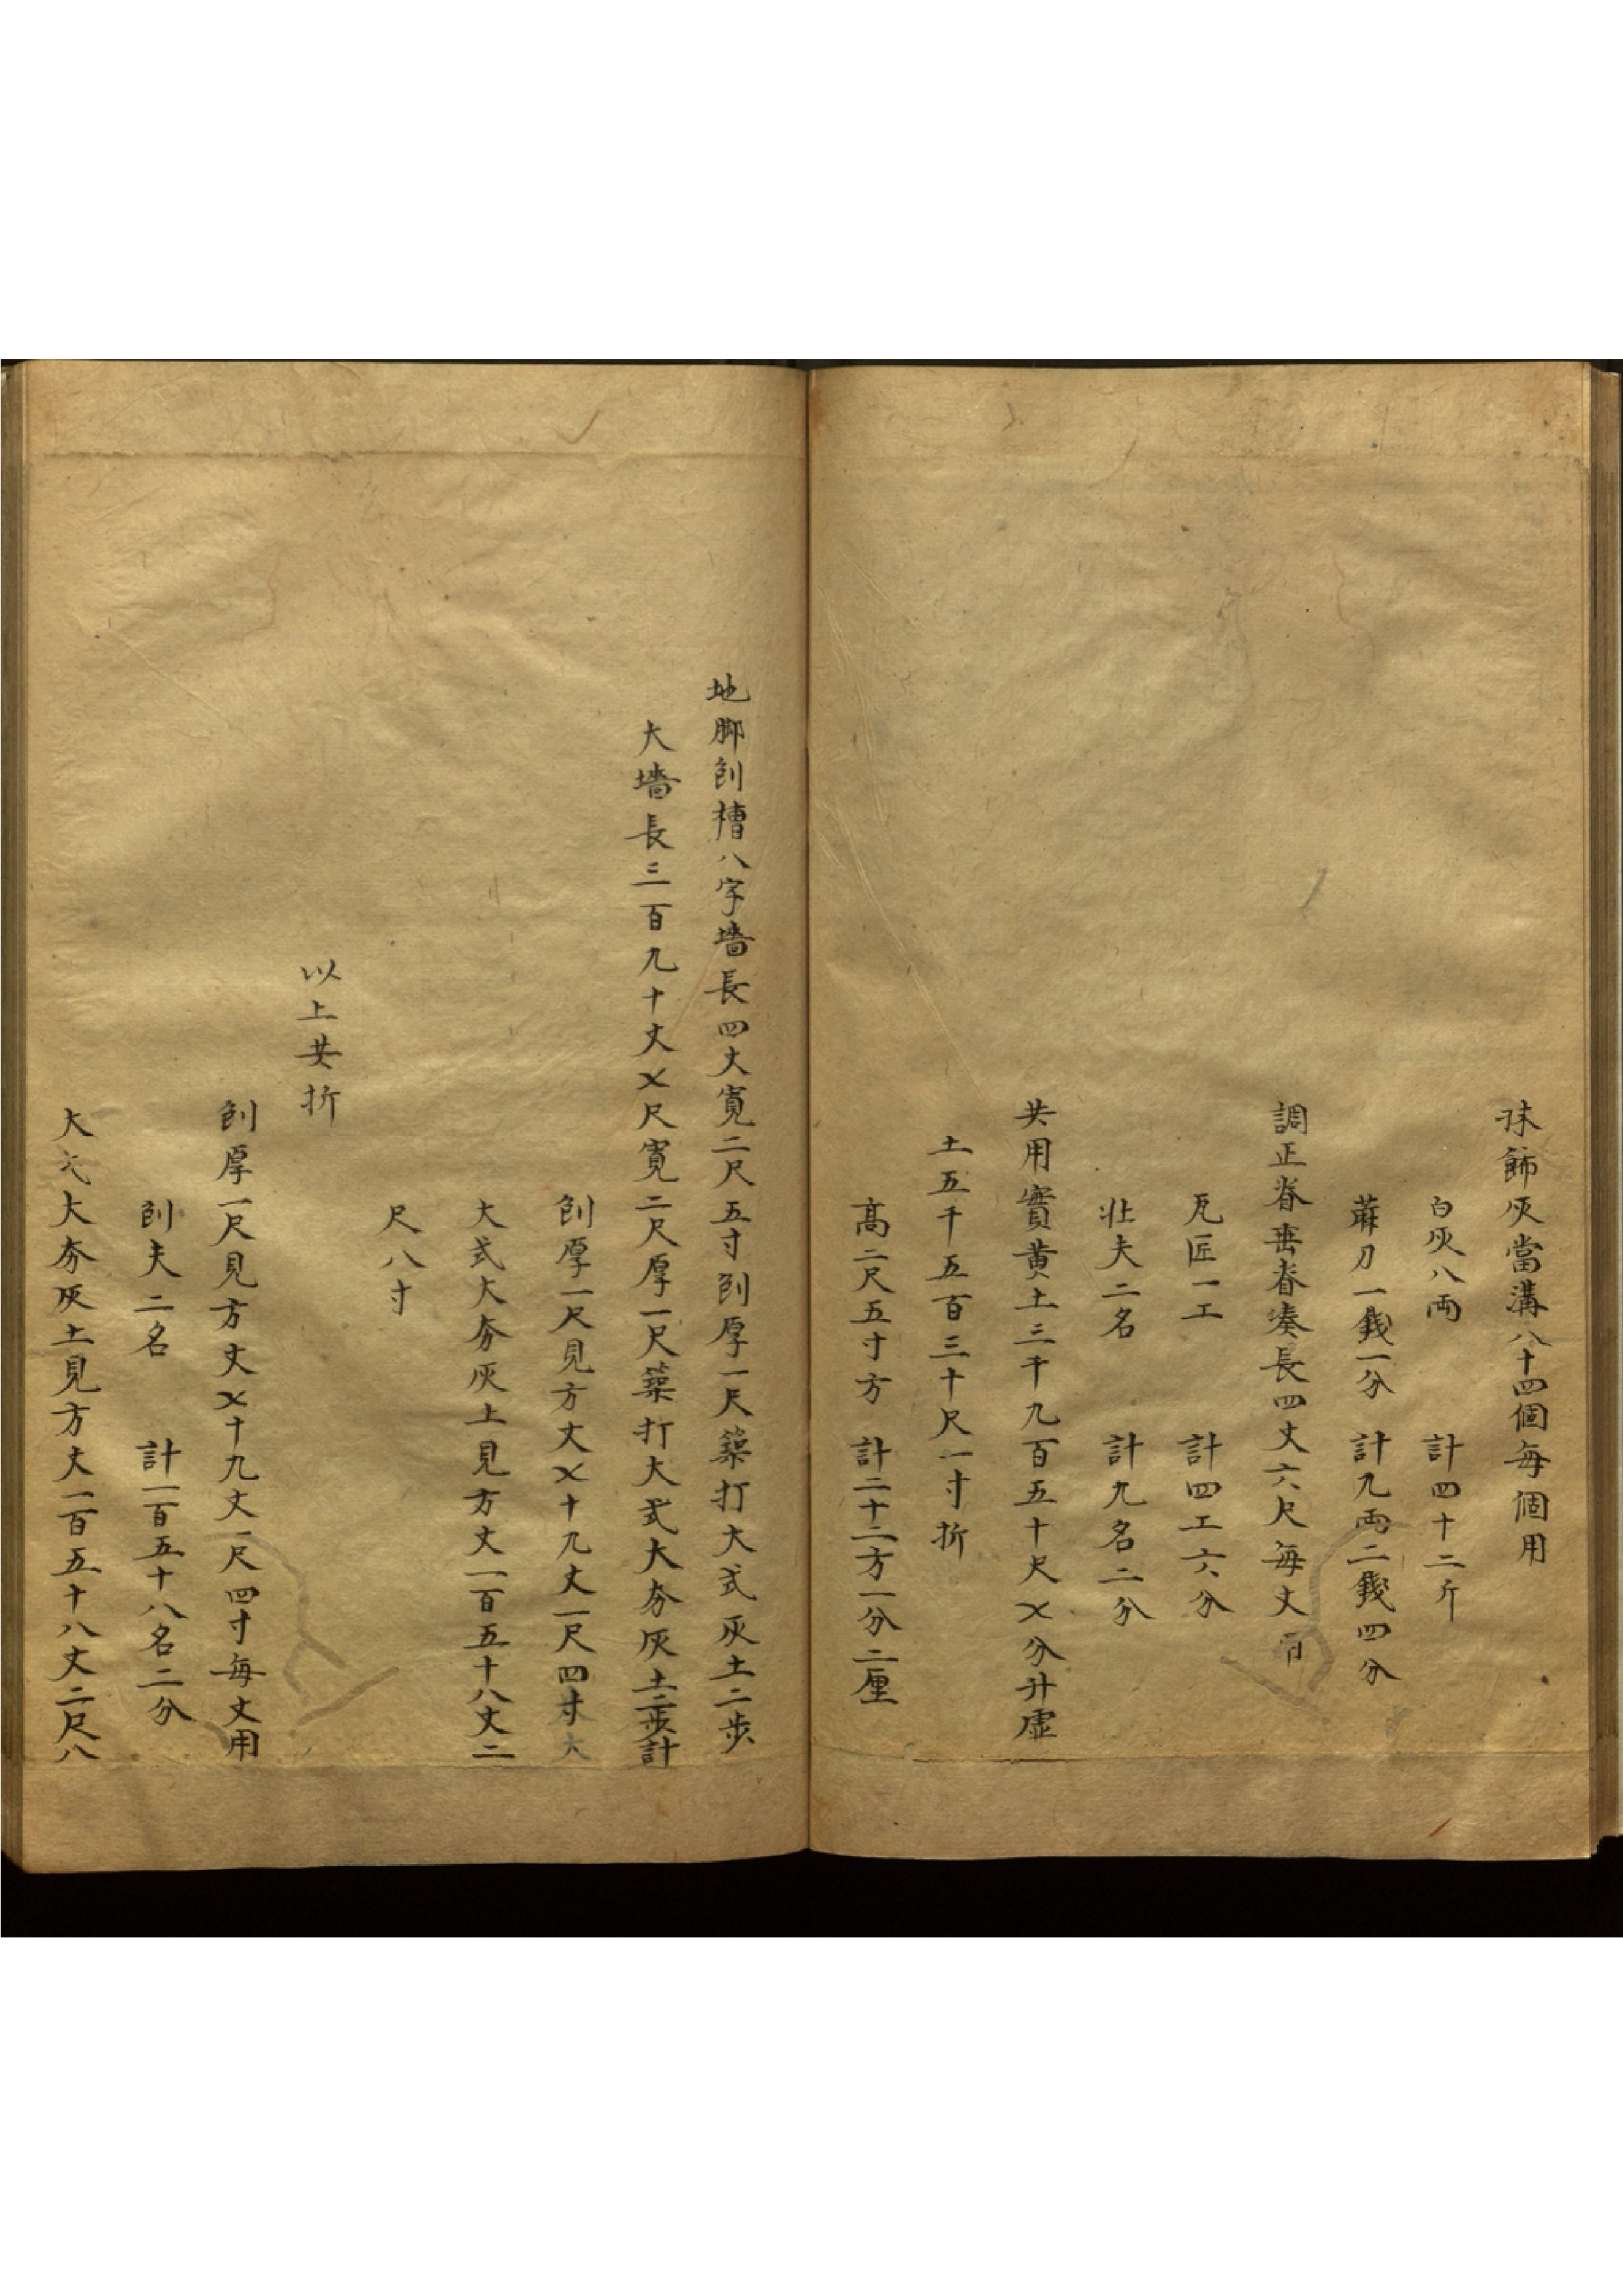 抹飾灰當溝八十四個每個用
白灰八兩 計四十二斤
蔴刀一錢一分 計九兩二錢四分
調正脊垂脊凑長四丈六尺每丈用
瓦匠一工 計四工六分
壯夫二名 計九名二分
共用實黃土三千九百五十尺〤分升虛
土五千五百三十尺一寸折
高二尺五寸方 計二十二方一分二厘
地脚刨槽八字墻長四丈寬二尺五寸刨厚一尺築打大式灰土二步
大墻長三百九十丈〤尺寬二尺厚一尺築打大式大夯灰土二步計
刨厚一尺見方丈〤十九丈一尺四寸大
大式大夯灰土見方丈一百五十八丈二
尺八寸
以上共折
刨厚一尺見方丈〤十九丈一尺四寸每丈用
刨夫二名 計一百五十八名二分
大式大夯灰土見方丈一百五十八丈二尺八